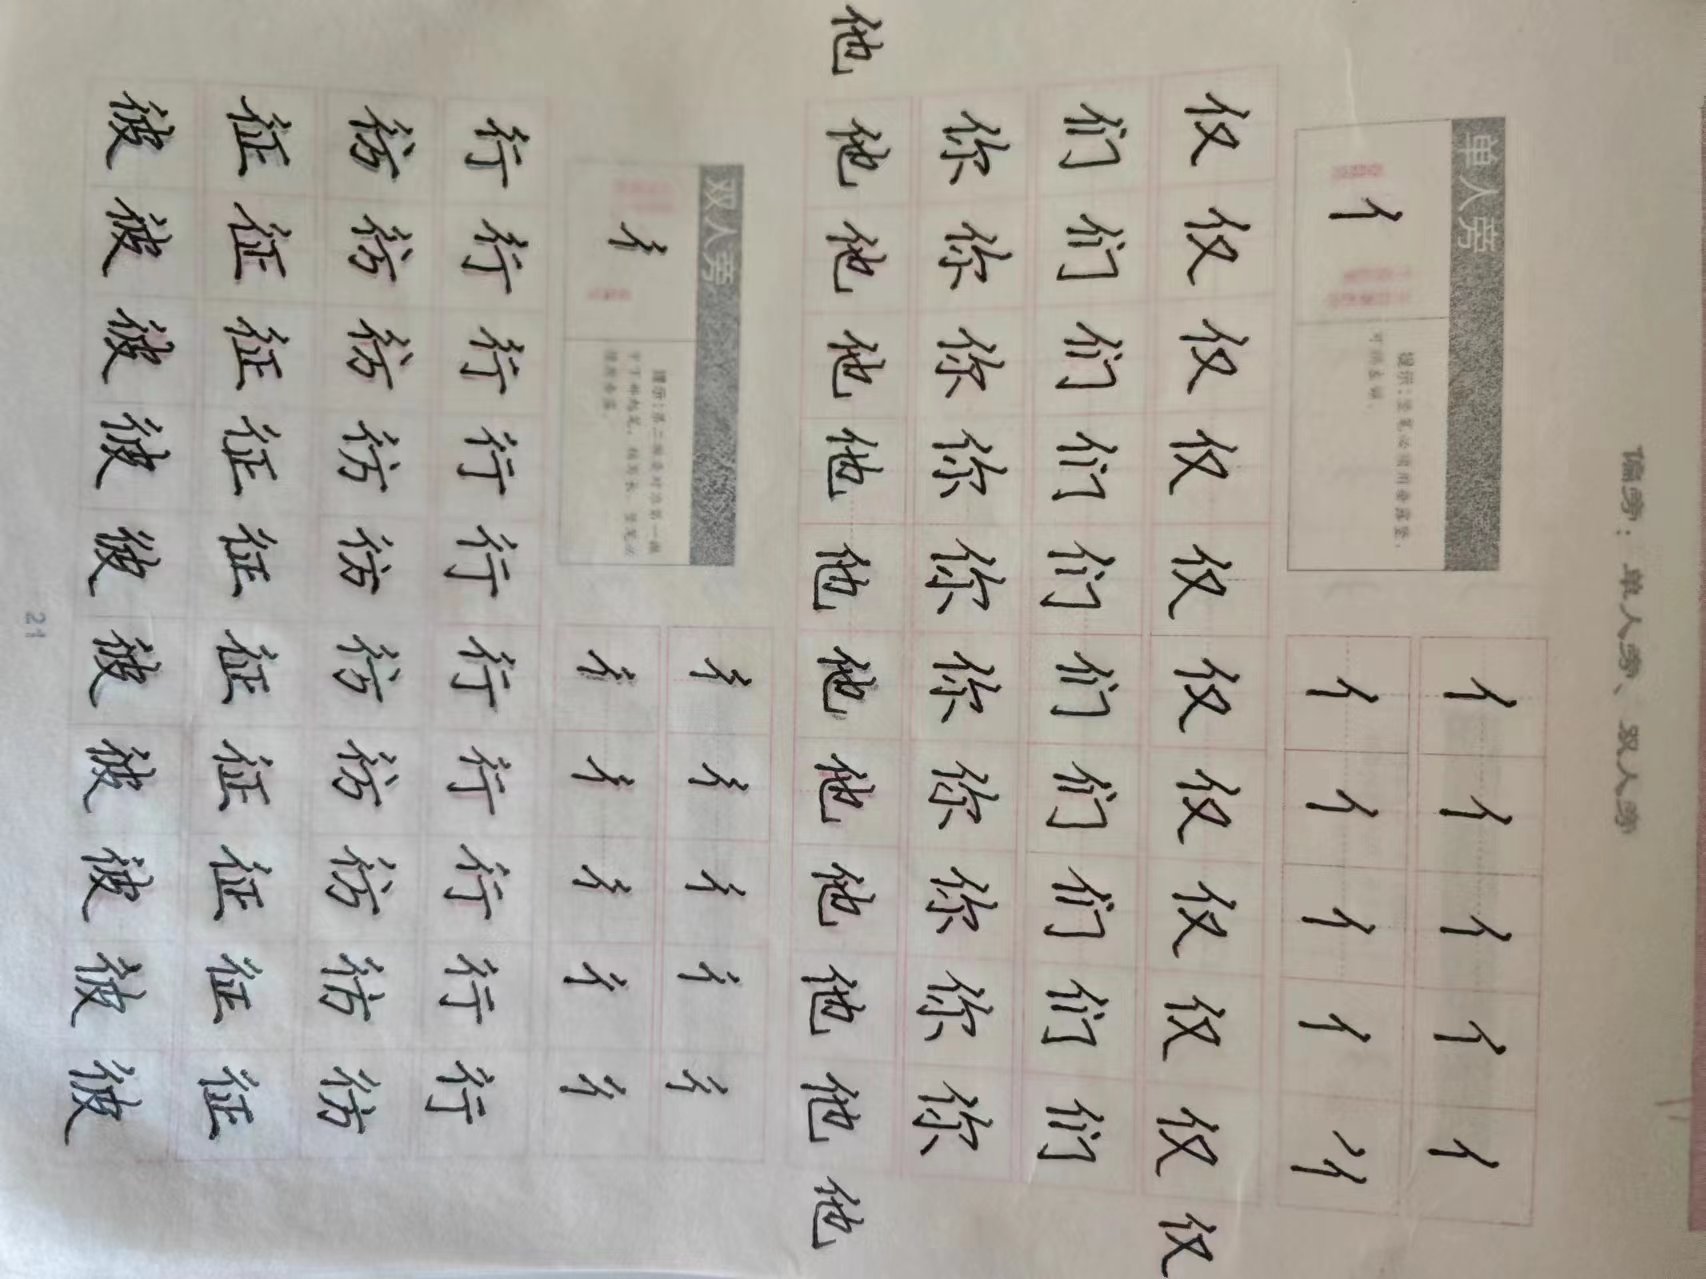 偏旁：单人旁、双人旁
单人旁
亻
提示：竖笔必须用垂露竖，
亻亻亻亻亻
亻亻亻亻亻
仅仅仅仅仅仅仅仅仅仅仅
们们们们们们们们们们
你你你你你你你你你你
他他他他他他他他他他他他
双人旁
彳
提示：第二撇要对准第一撇
彳彳彳彳彳
彳彳彳彳彳
行行行行行行行行行行
彷彷彷彷彷彷彷彷彷彷
征征征征征征征征征征
彼彼彼彼彼彼彼彼彼彼
21